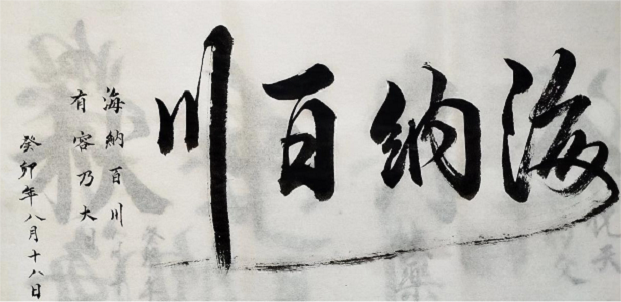 海納百川
海納百川
有容乃大
癸卯年八月十八日